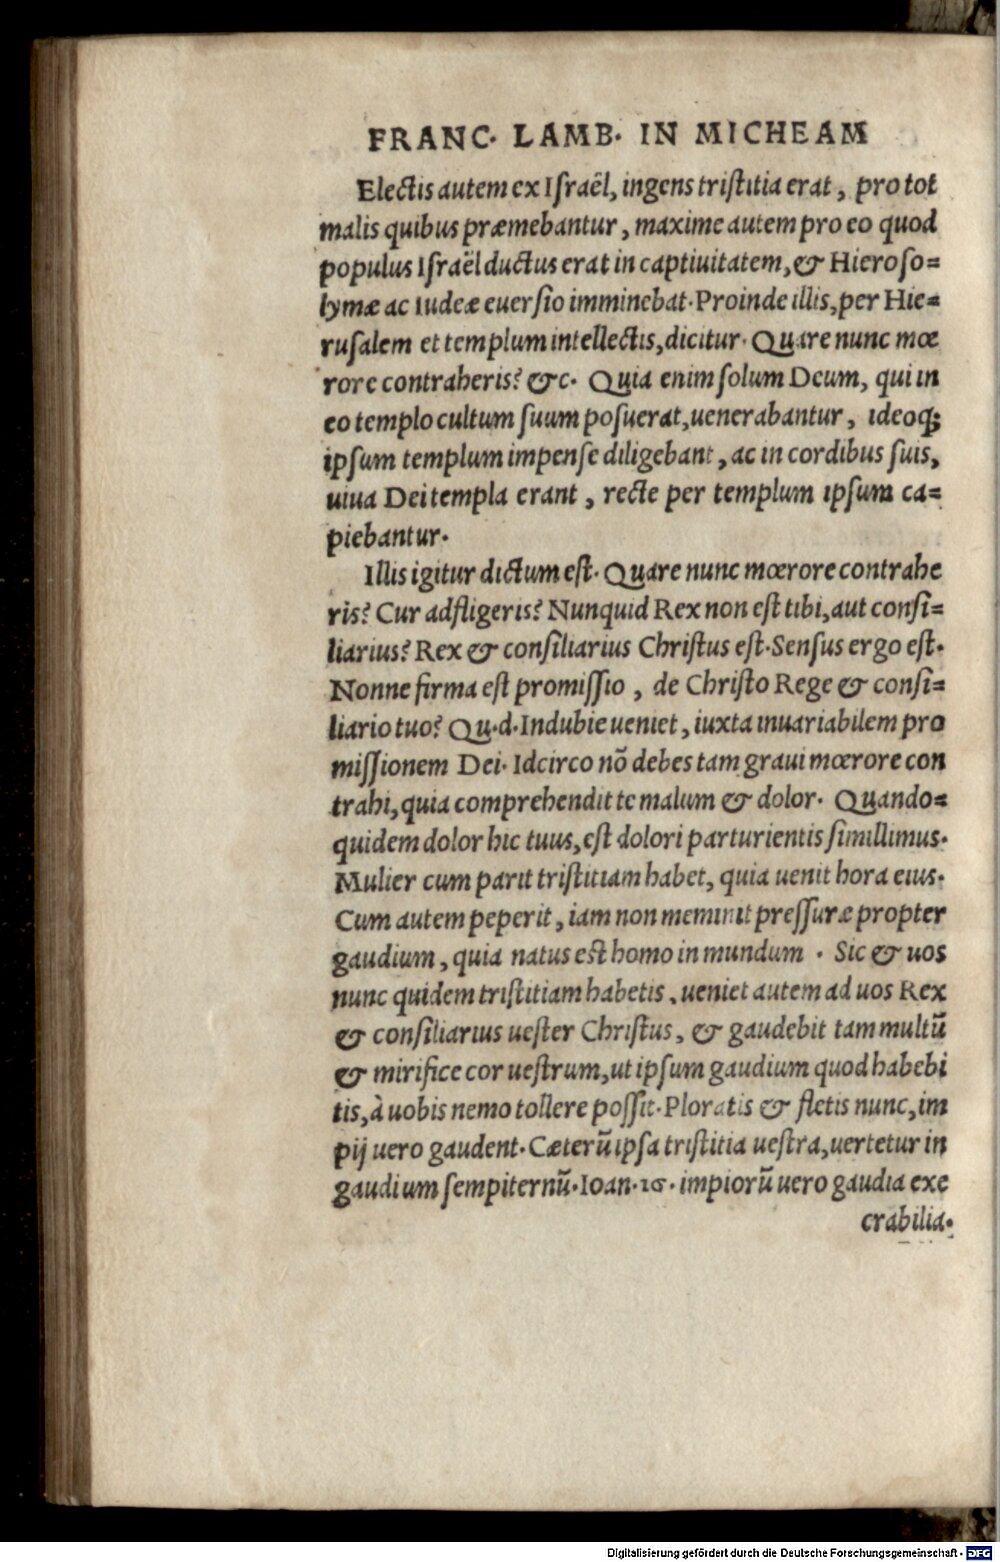 FRANC. LAMB. IN MICHEAM
Electis autem ex Iſraël, ingens triſtitia erat, pro tot
malis quibus præmebantur, maxime autem pro eo quod
populus Iſraël ductus erat in captiuitatem, & Hieroſo=
lymæ ac Iudeæ euerſio imminebat. Proinde illis, per Hie=
ruſalem et templum intellectis, dicitur. Quare nunc mœ
rore contraheris? &c. Quia enim ſolum Deum, qui in
eo templo cultum ſuum poſuerat, uenerabantur, ideoq;
ipſum templum impenſe diligebant, ac in cordibus ſuis,
uiua Dei templa erant, recte per templum ipſum ca=
piebantur.
Illis igitur dictum eſt. Quare nunc mœrore contrahe
ris? Cur adfligeris? Nunquid Rex non eſt tibi, aut conſi=
liarius? Rex & conſiliarius Chriſtus eſt. Senſus ergo eſt.
Nonne firma eſt promiſſio, de Chriſto Rege & conſi=
liario tuo? Qu.d. Indubie ueniet, iuxta inuariabilem pro
miſſionem Dei. Idcirco nō debes tam graui mœrore con
trahi, quia comprehendit te malum & dolor. Quando=
quidem dolor hic tuus, eſt dolori parturientis ſimillimus.
Mulier cum parit triſtitiam habet, quia uenit hora eius.
Cum autem peperit, iam non meminit preſſuræ propter
gaudium, quia natus eſt homo in mundum. Sic & uos
nunc quidem triſtitiam habetis, ueniet autem ad uos Rex
& conſiliarius ueſter Chriſtus, & gaudebit tam multū
& mirifice cor ueſtrum, ut ipſum gaudium quod habebi
tis, à uobis nemo tollere poſſit. Ploratis & fletis nunc, im
pij uero gaudent. Cæterū ipſa triſtitia ueſtra, uertetur in
gaudium ſempiternū. Ioan. 16. impiorū uero gaudia exe
crabilia.
Digitalisierung gefördert durch die Deutsche Forschungsgemeinschaft - DFG